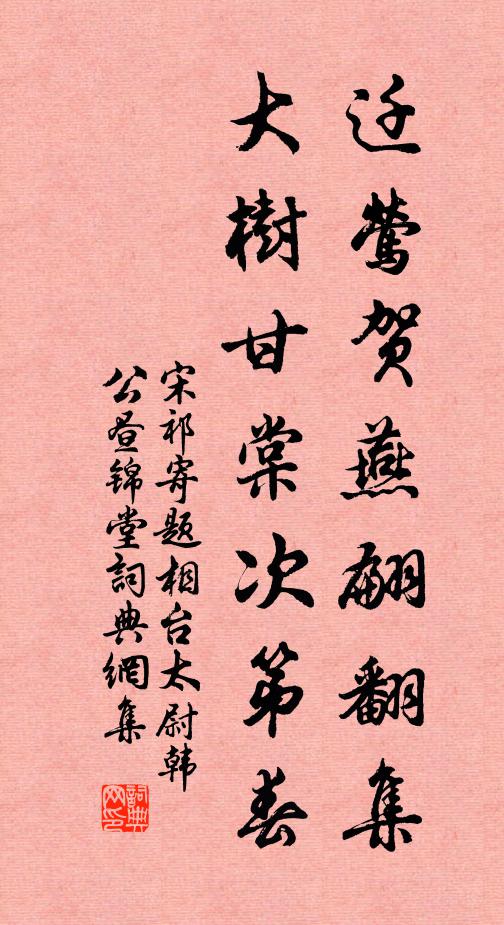 迁鶯贺燕翩翻集
大樹甘棠次第春
宋祁寄题相台太尉韩
公昼锦堂詞典網集
詞典网印